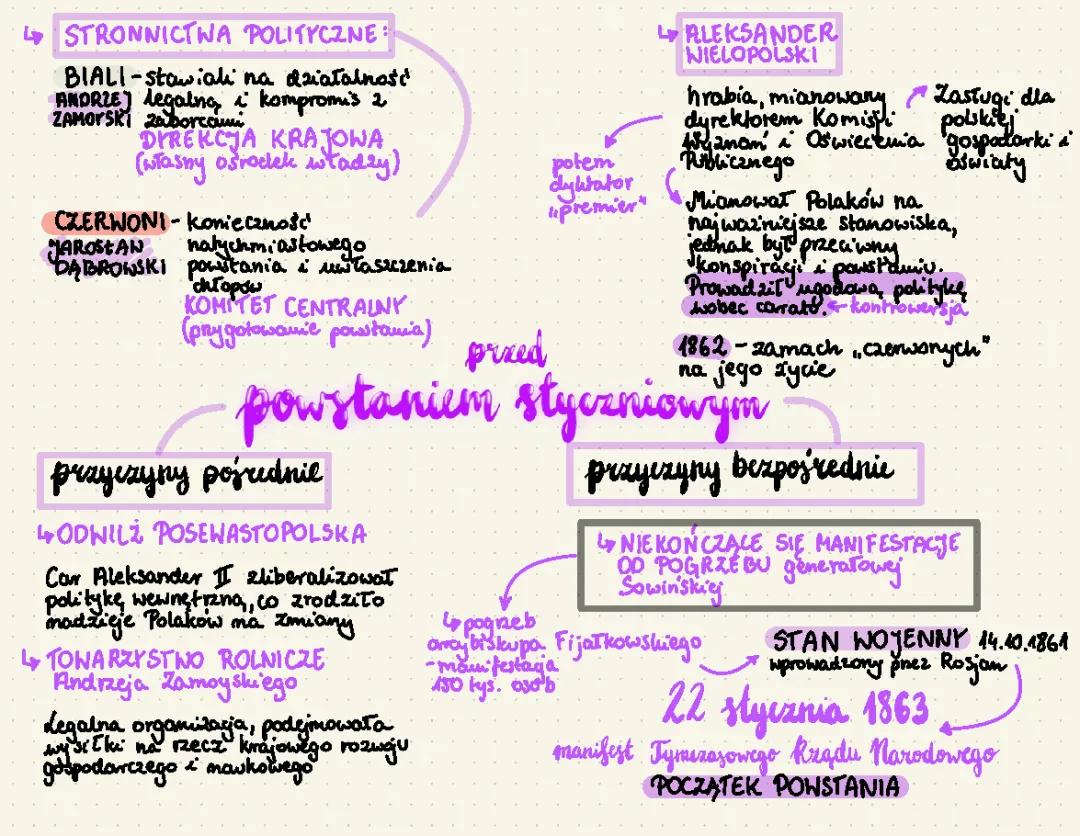 ↳ STRONNICTWA POLITYCZNE:
BIALI - stawiali na działalność
ANDRZEJ legalną i kompromis z
ZAMOYSKI zaborcami
DYREKCJA KRAJOWA
(własny ośrodek władzy)
CZERWONI - konieczność
JAROSŁAW natychmiastowego
DĄBROWSKI powstania i uwłaszczenia
chłopów
KOMITET CENTRALNY
(przygotowanie powstania)
↳ ALEKSANDER
WIELOPOLSKI
hrabia, mianowany
dyrektorem Komisji
Wyznań i Oświecenia
Publicznego
Zasługi dla
polskiej
gospodarki i
oświaty
potem
dyktator
"premier"
Mianował Polaków na
najważniejsze stanowiska,
jednak był przeciwny
konspiracji i powstaniu.
Prowadził ugodową politykę
wobec caratu. ← kontrowersja
1862 - zamach „czerwonych"
na jego życie
przed
powstaniem styczniowym
przyczyny pośrednie
↳ ODWILŻ POSEWASTOPOLSKA
Car Aleksander II zliberalizował
politykę wewnętrzną, co zrodziło
nadzieje Polaków na zmiany
↳ TOWARZYSTWO ROLNICZE
Andrzeja Zamoyskiego
Legalna organizacja, podejmowała
wysiłki na rzecz krajowego rozwoju
gospodarczego i naukowego
przyczyny bezpośrednie
↳ NIEKOŃCZĄCE SIĘ MANIFESTACJE
OD POGRZEBU generałowej
Sowińskiej
↳ pogrzeb
arcybiskupa Fijałkowskiego
- manifestacja
150 tys. osób
STAN WOJENNY 14.10.1861
wprowadzony przez Rosjan
22 stycznia 1863
manifest Tymczasowego Rządu Narodowego
POCZĄTEK POWSTANIA